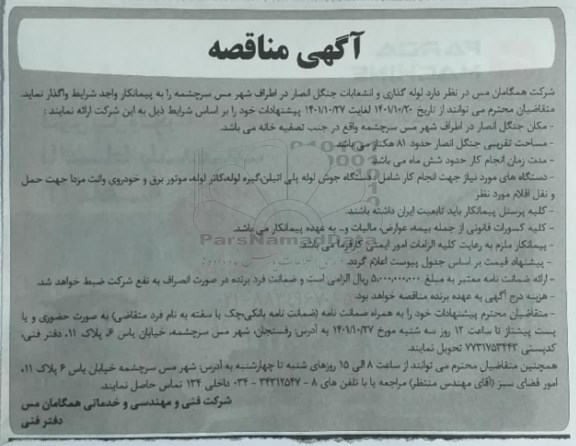 آگهی مناقصه
شرکت همگامان مس در نظر دارد لوله گذاری و انشعابات جنگل انصار در اطراف شهر مس سرچشمه را به پیمانکار واجد شرایط واگذار نماید.
متقاضیان محترم می توانند از تاریخ ۱۴۰۱/۱۰/۲۰ لغایت ۱۴۰۱/۱۰/۲۷ پیشنهادات خود را بر اساس شرایط ذیل به این شرکت ارائه نمایند :
- مکان جنگل انصار در اطراف شهر مس سرچشمه واقع در جنب تصفیه خانه می باشد.
- مساحت تقریبی جنگل انصار حدود ۸۱ هکتار می باشد
- مدت زمان انجام کار حدود شش ماه می باشد
- دستگاه های مورد نیاز جهت انجام کار شامل: دستگاه جوش لوله پلی اتیلن،گیره لوله،کاتر لوله، موتور برق و خودروی وانت مزدا جهت حمل
و نقل اقلام مورد نظر
- کلیه پرسنل پیمانکار باید تابعیت ایران داشته باشند.
- کلیه کسورات قانونی از جمله بیمه، عوارض، مالیات و... به عهده پیمانکار می باشد.
- پیمانکار ملزم به رعایت کلیه الزامات امور ایمنی کارفرما می باشد.
ParsNamadData
- پیشنهاد قیمت بر اساس جدول پیوست اعلام گردد.
- ارائه ضمانت نامه معتبر به مبلغ ۵,۰۰۰,۰۰۰,۰۰۰ ریال الزامی است و ضمانت فرد برنده در صورت انصراف به نفع شرکت ضبط خواهد شد.
- هزینه درج آگهی به عهده برنده مناقصه خواهد بود.
- متقاضیان محترم پیشنهادات خود را به همراه ضمانت نامه (ضمانت نامه بانکی،چک یا سفته به نام فرد متقاضی) به صورت حضوری و یا
پست پیشتاز تا ساعت ۱۲ روز سه شنبه مورخ ۱۴۰۱/۱۰/۲۷ به آدرس: رفسنجان، شهر مس سرچشمه، خیابان یاس ۶، پلاک ۱۱، دفتر فنی،
کدپستی ۷۷۳۱۷۵۳۴۴۳ تحویل نمایند.
همچنین متقاضیان محترم می توانند از ساعت ۸ الی ۱۵ روزهای شنبه تا چهارشنبه به آدرس: شهر مس سرچشمه خیابان یاس ۶ پلاک ۱۱،
امور فضای سبز (آقای مهندس منتظر) مراجعه یا با تلفن های ۸ - ۳۴۳۱۲۵۴۷ - ۰۳۴ داخلی ۱۲۴ تماس حاصل نمایند.
شرکت فنی و مهندسی و خدماتی همگامان مس
دفتر فنی